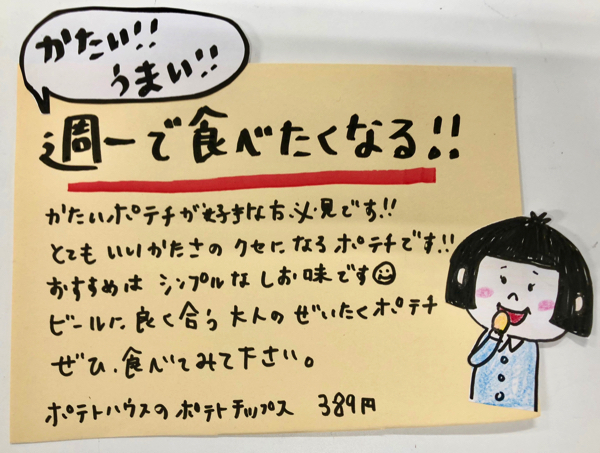 かたい!!
うまい!!
週一で食べたくなる!!
かたいポテチが好きな方、必見です!!
とてもいいかたさのクセになるポテチです!!
おすすめはシンプルなしお味です
ビールに良く合う大人のぜいたくポテチ
ぜひ、食べてみて下さい。
ポテトハウスのポテトチップス 389円